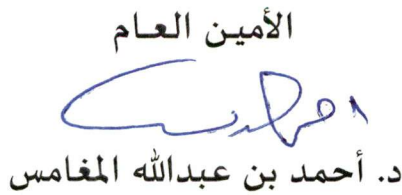 الأمين العـام
د. أحمد بن عبدالله المغامس